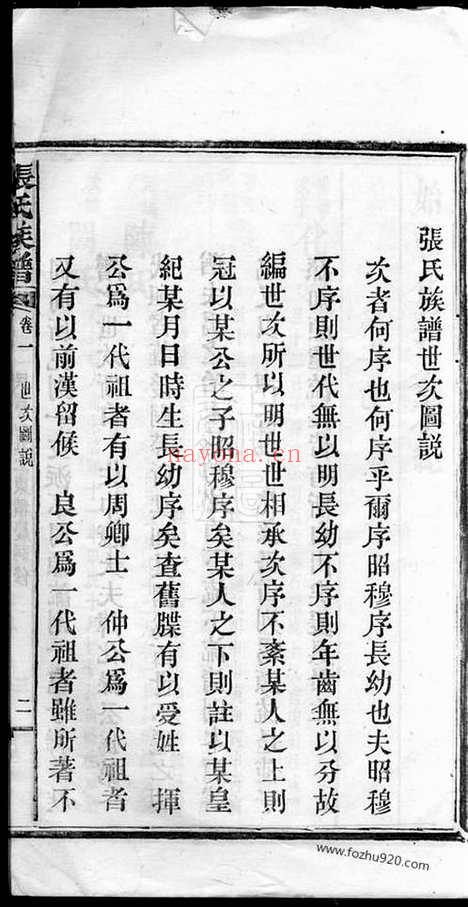 張氏族譜世次圖説
次者何序也何序乎爾序昭穆序長幼也夫昭穆
不序則世代無以明長幼不序則年齒無以分故
編世次所以明世世相承次序不紊某人之上則
冠以某公之子昭穆序矣某人之下則註以某皇
紀某月日時生長幼序矣查舊牒有以受姓 揮
公爲一代祖者有以周卿士 仲公爲一代祖者
又有以前漢留候 良公爲一代祖者雖所著不
張氏族譜 卷一 世次圖説 二
nayona.cn
www.fozhu920.com